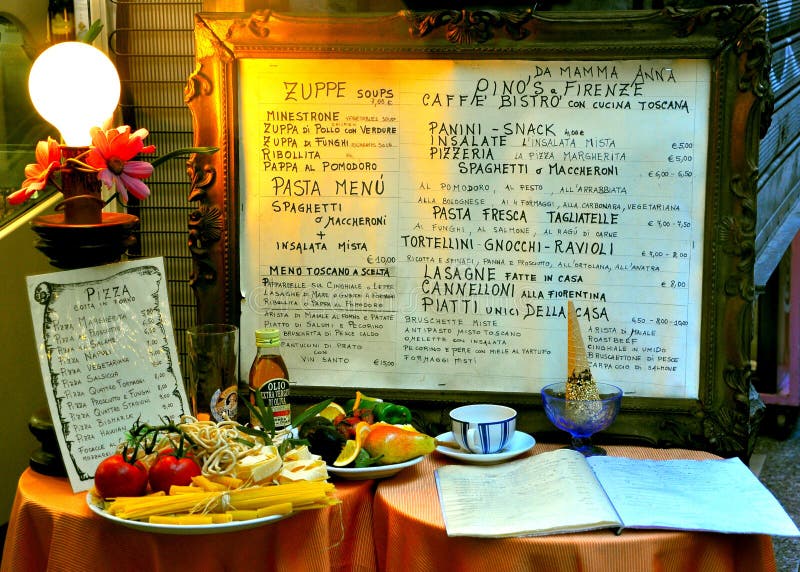 ZUPPE SOUPS
MINESTRONE VEGETABLES SOUP
ZUPPA DI POLLO CON VERDURE
ZUPPA DI FUNGHI
RIBOLLITA
PAPPA AL POMODORO
PASTA MENÚ
SPAGHETTI
O MACCHERONI
+
INSALATA MISTA
€ 10,00
MENO TOSCANO A SCELTA
PAPPARDELLE SUL CINGHIALE O LEPRE
LASAGNE DI MARE O GNOCCHI
RIBOLLITA O PAPPA AL POMODORO
ARISTA DI MAIALE AL FORNO E PATATE
PIATTO DI SALUMI E PECORINO
BRUSCHETTA DI PESCE CALDO
CANTUCCINI DI PRATO
CON
VIN SANTO € 15,00
DA MAMMA ANNA
PINO'S A FIRENZE
CAFFE' BISTRO' CON CUCINA TOSCANA
PANINI - SNACK 4,00 €
INSALATE L'INSALATA MISTA € 5,00
PIZZERIA LA PIZZA MARGHERITA € 5,00
SPAGHETTI O MACCHERONI € 6,00 - 6,50
AL POMODORO, AL PESTO, ALL'ARRABBIATA
ALLA BOLOGNESE, AI 4 FORMAGGI, ALLA CARBONARA, VEGETARIANA
PASTA FRESCA TAGLIATELLE € 7,00 - 7,50
AI FUNGHI, AL SALMONE, AL RAGÚ DI CARNE
TORTELLINI - GNOCCHI - RAVIOLI € 7,00 - 8,00
RICOTTA E SPINACI, PANNA E PROSCIUTTO, ALL'ORTOLANA, ALL'ANATRA
LASAGNE FATTE IN CASA
CANNELLONI ALLA FIORENTINA € 8,00
PIATTI UNICI DELLA CASA
6,50 - 8,00 - 10,00
BRUSCHETTE MISTE
ANTIPASTO MISTO TOSCANO
OMELETTE CON INSALATA
PECORINO E PERE CON MIELE AL TARTUFO
FORMAGGI MISTI
ARISTA DI MAIALE
ROASTBEEF
CINGHIALE IN UMIDO
BRUSCHETTONE DI PESCE
CARPACCIO DI SALMONE
PIZZA
COTTA IN FORNO
PIZZA MARGHERITA
PIZZA PROSCIUTTO
PIZZA SALAME
PIZZA NAPOLI
PIZZA VEGETARIANA
PIZZA SALSICCIA
PIZZA QUATTRO FORMAGGI
PIZZA PROSCIUTTO E FUNGHI
PIZZA QUATTRO STAGIONI
PIZZA BISMARK
PIZZA HAWAIAN
FOCACCE
OLIO
EXTRA VERGINE
DI OLIVA